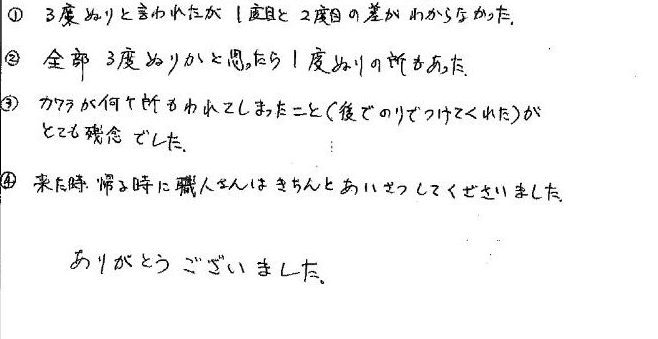 ① 3度ぬりと言われたが 1度目と 2度目の差が わからなかった。
② 全部 3度ぬりかと思ったら 1度ぬりの所もあった。
③ カワラが何ヶ所もわれてしまったこと(後でのりでつけてくれた)が
とても残念でした。
④ 来た時. 帰る時に職人さんはきちんとあいさつしてくださいました。
ありがとうございました。